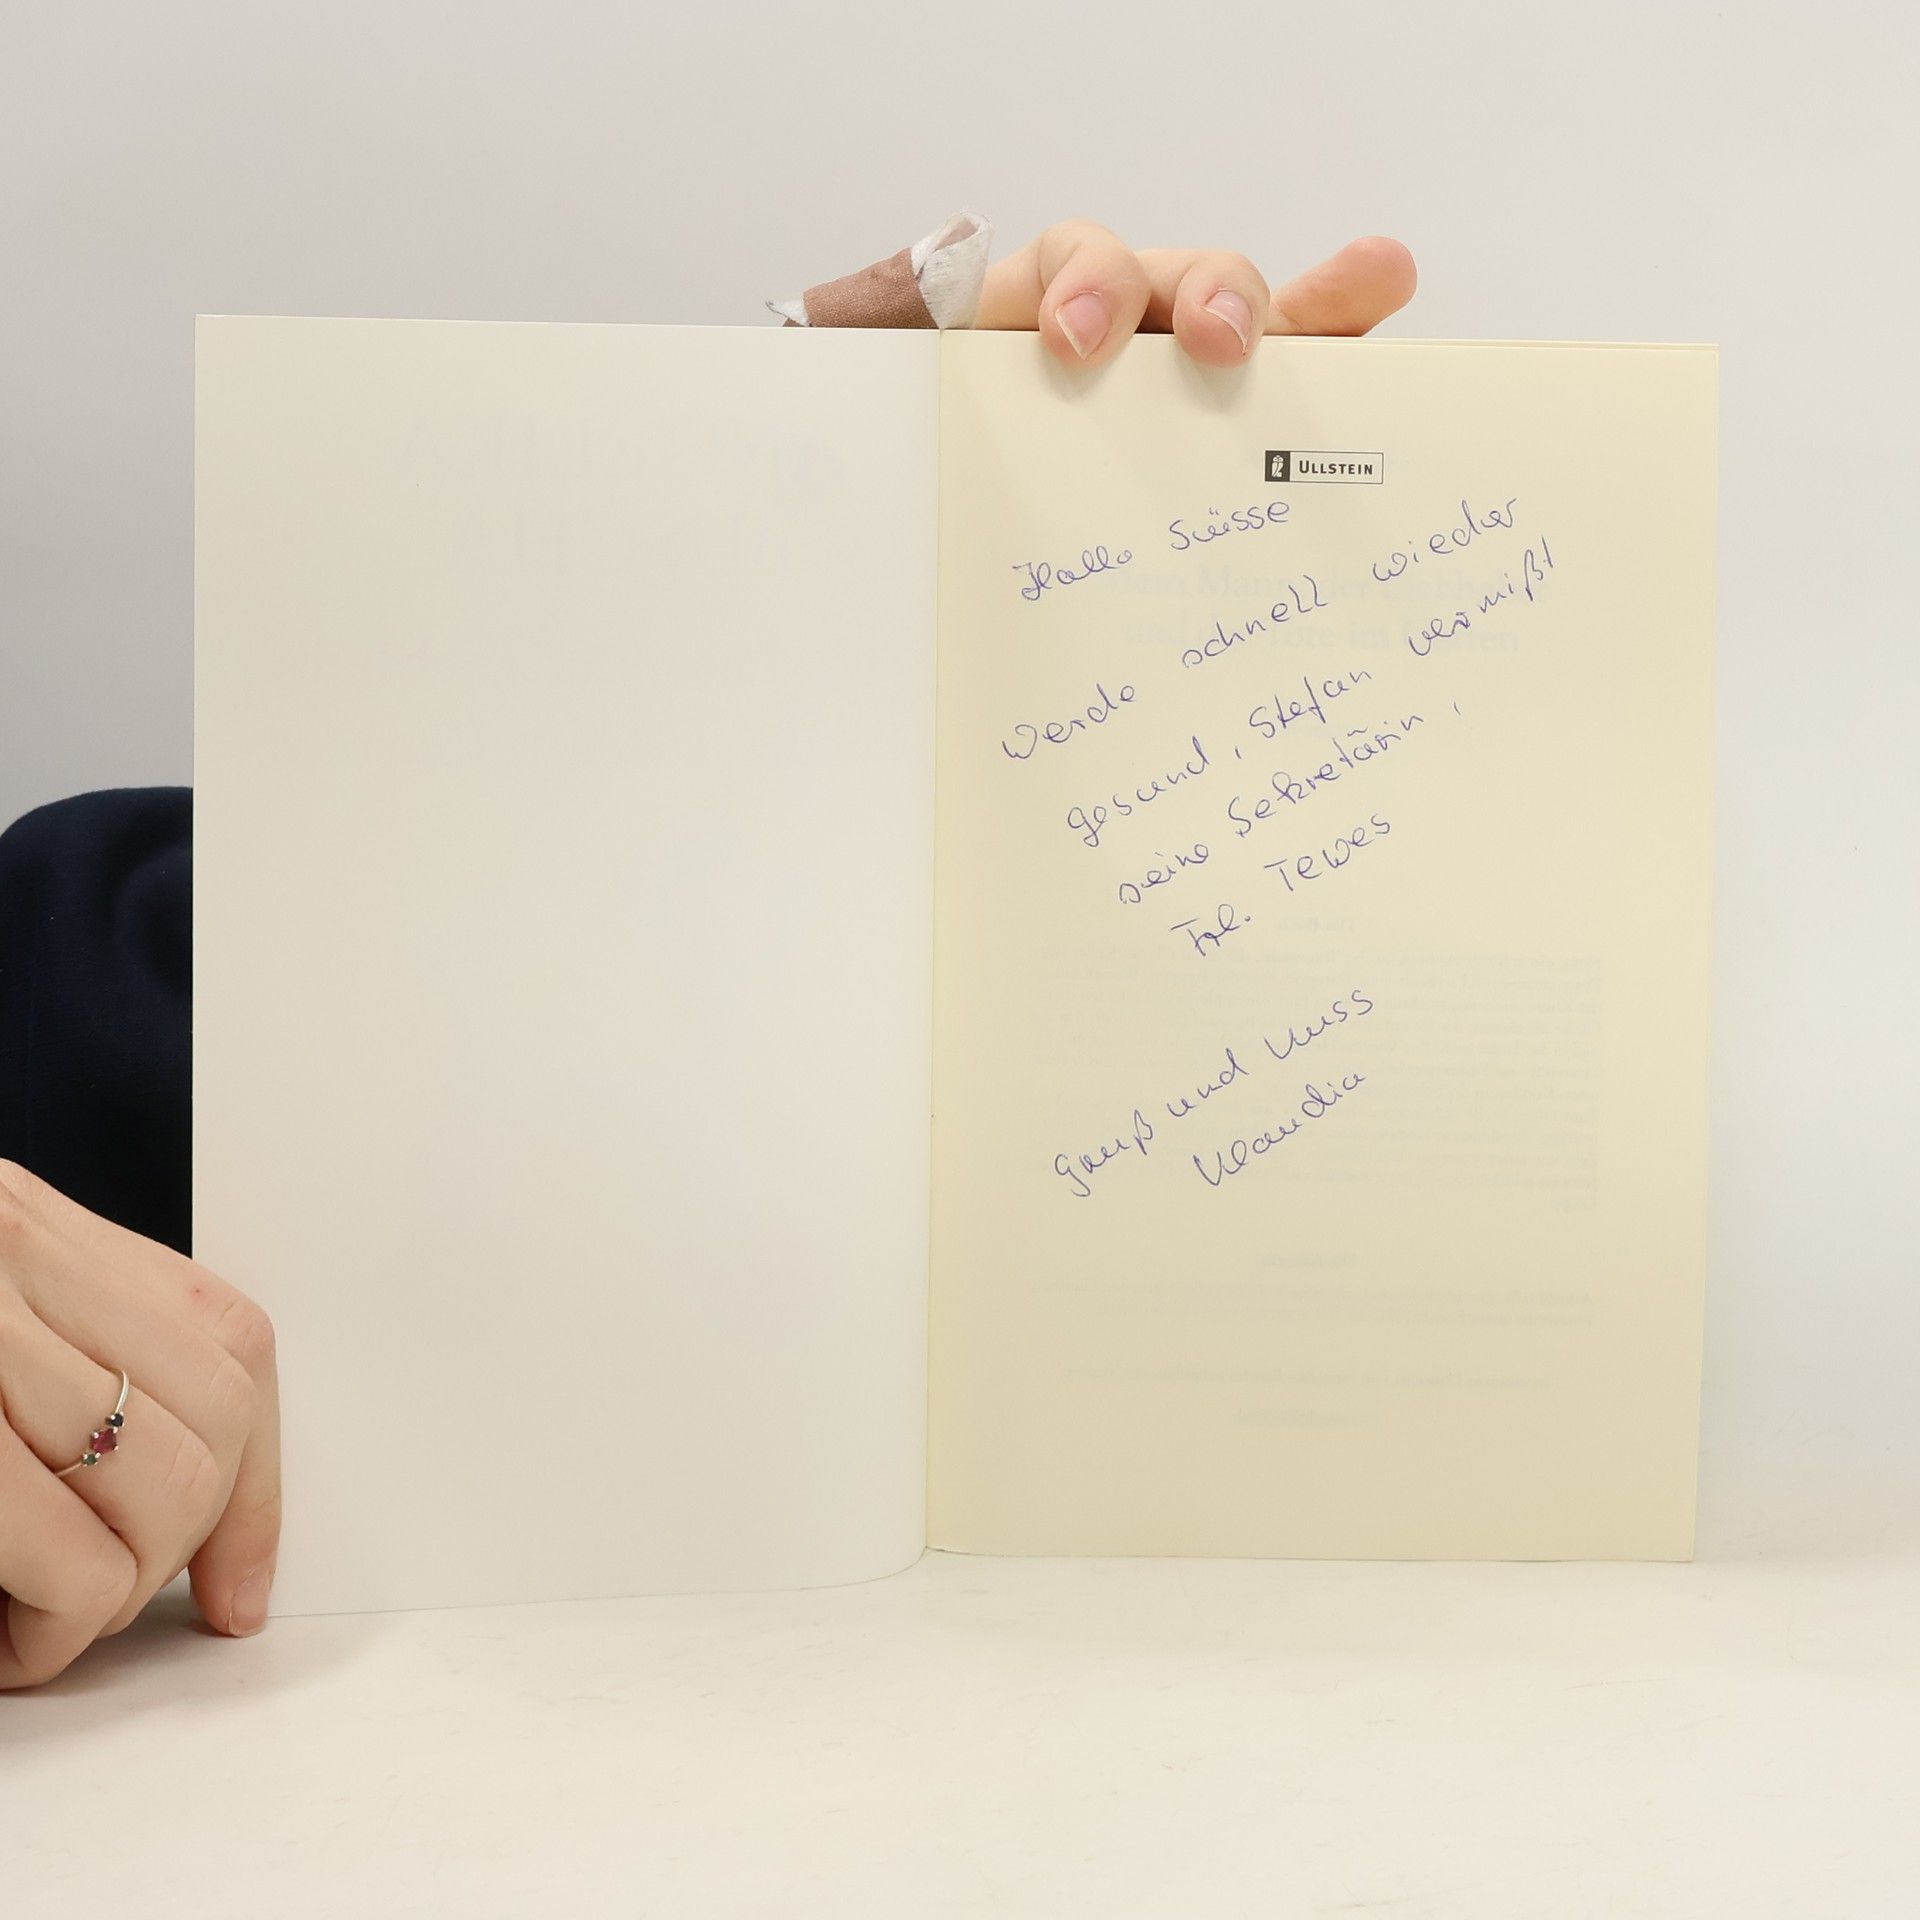 ULLSTEIN
Hallo Süsse
Werde schnell wieder
gesund, Stefan vermißt
seine Sekretärin,
Frl. Tewes
Gruß und Kuss
Klaudia